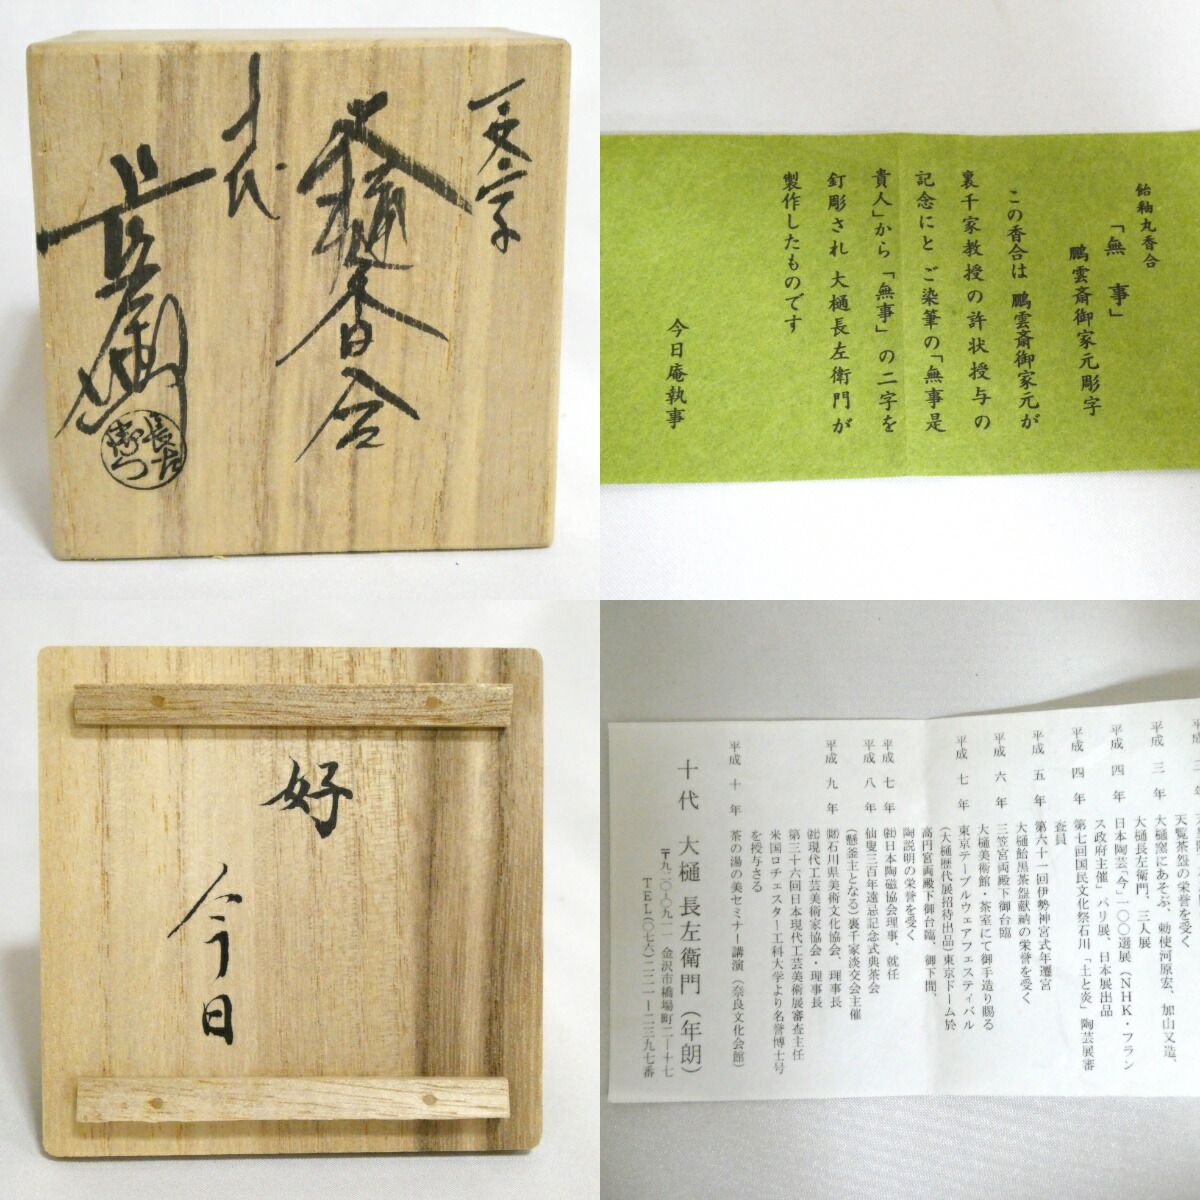 文字
大樋香合
十代
長左衛門
長左衛門
飴釉丸香合
「無事」
鵬雲斎御家元彫字
この香合は 鵬雲斎御家元が
裏千家教授の許状授与の
記念にと ご染筆の「無事是
貴人」から「無事」の二字を
釘彫され 大樋長左衛門が
製作したものです
今日庵執事
好
今日
天覧茶盌の栄誉を受く
平成三年 大樋窯にあそぶ、勅使河原宏、加山又造、
大樋長左衛門、三人展
平成四年 日本陶芸「今」一〇〇選展(NHK・フラン
ス政府主催)パリ展、日本展出品
平成四年 第七回国民文化祭石川「土と炎」陶芸展審
査員
平成五年 第六十一回伊勢神宮式年遷宮
大樋飴黒茶盌献納の栄誉を受く
平成六年 三笠宮両殿下御台臨
大樋美術館・茶室にて御手造り賜る
平成七年 東京テーブルウェアフェスティバル
(大樋歴代展招待出品)東京ドーム於
高円宮両殿下御台臨、御下問、
陶説明の栄誉を受く
平成七年 ㈳日本陶磁協会理事、就任
平成八年 仙叟三百年遠忌記念式典茶会
(懸釜主となる)裏千家淡交会主催
平成九年 ㈶石川県美術文化協会、理事長
㈳現代工芸美術家協会・理事長
第三十六回日本現代工芸美術展審査主任
米国ロチェスター工科大学より名誉博士号
を授与さる
平成十年 茶の湯の美セミナー講演(奈良文化会館)
十代 大樋長左衛門(年朗)
〒九二〇-〇九一一 金沢市橋場町二-十七
TEL(〇七六)二二一-二三九七番